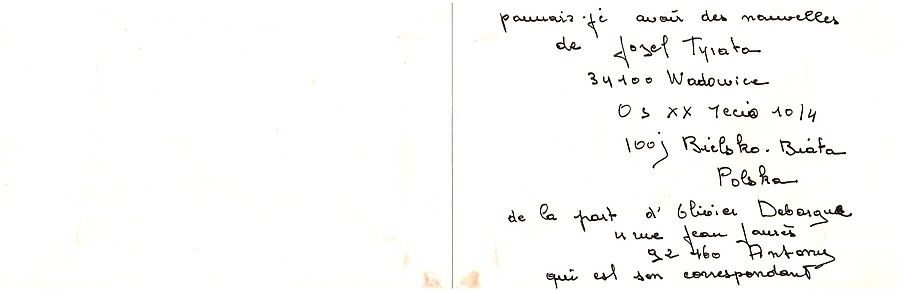 pouvais-je avoir des nouvelles
de Jozef Tyrata
34100 Wadowice
Os XX lecia 10/4
woj Bielsko-Biała
Polska
de la part d'Olivier Debargue
11 rue Jean Jaurès
92 460 Antony
qui est son correspondant